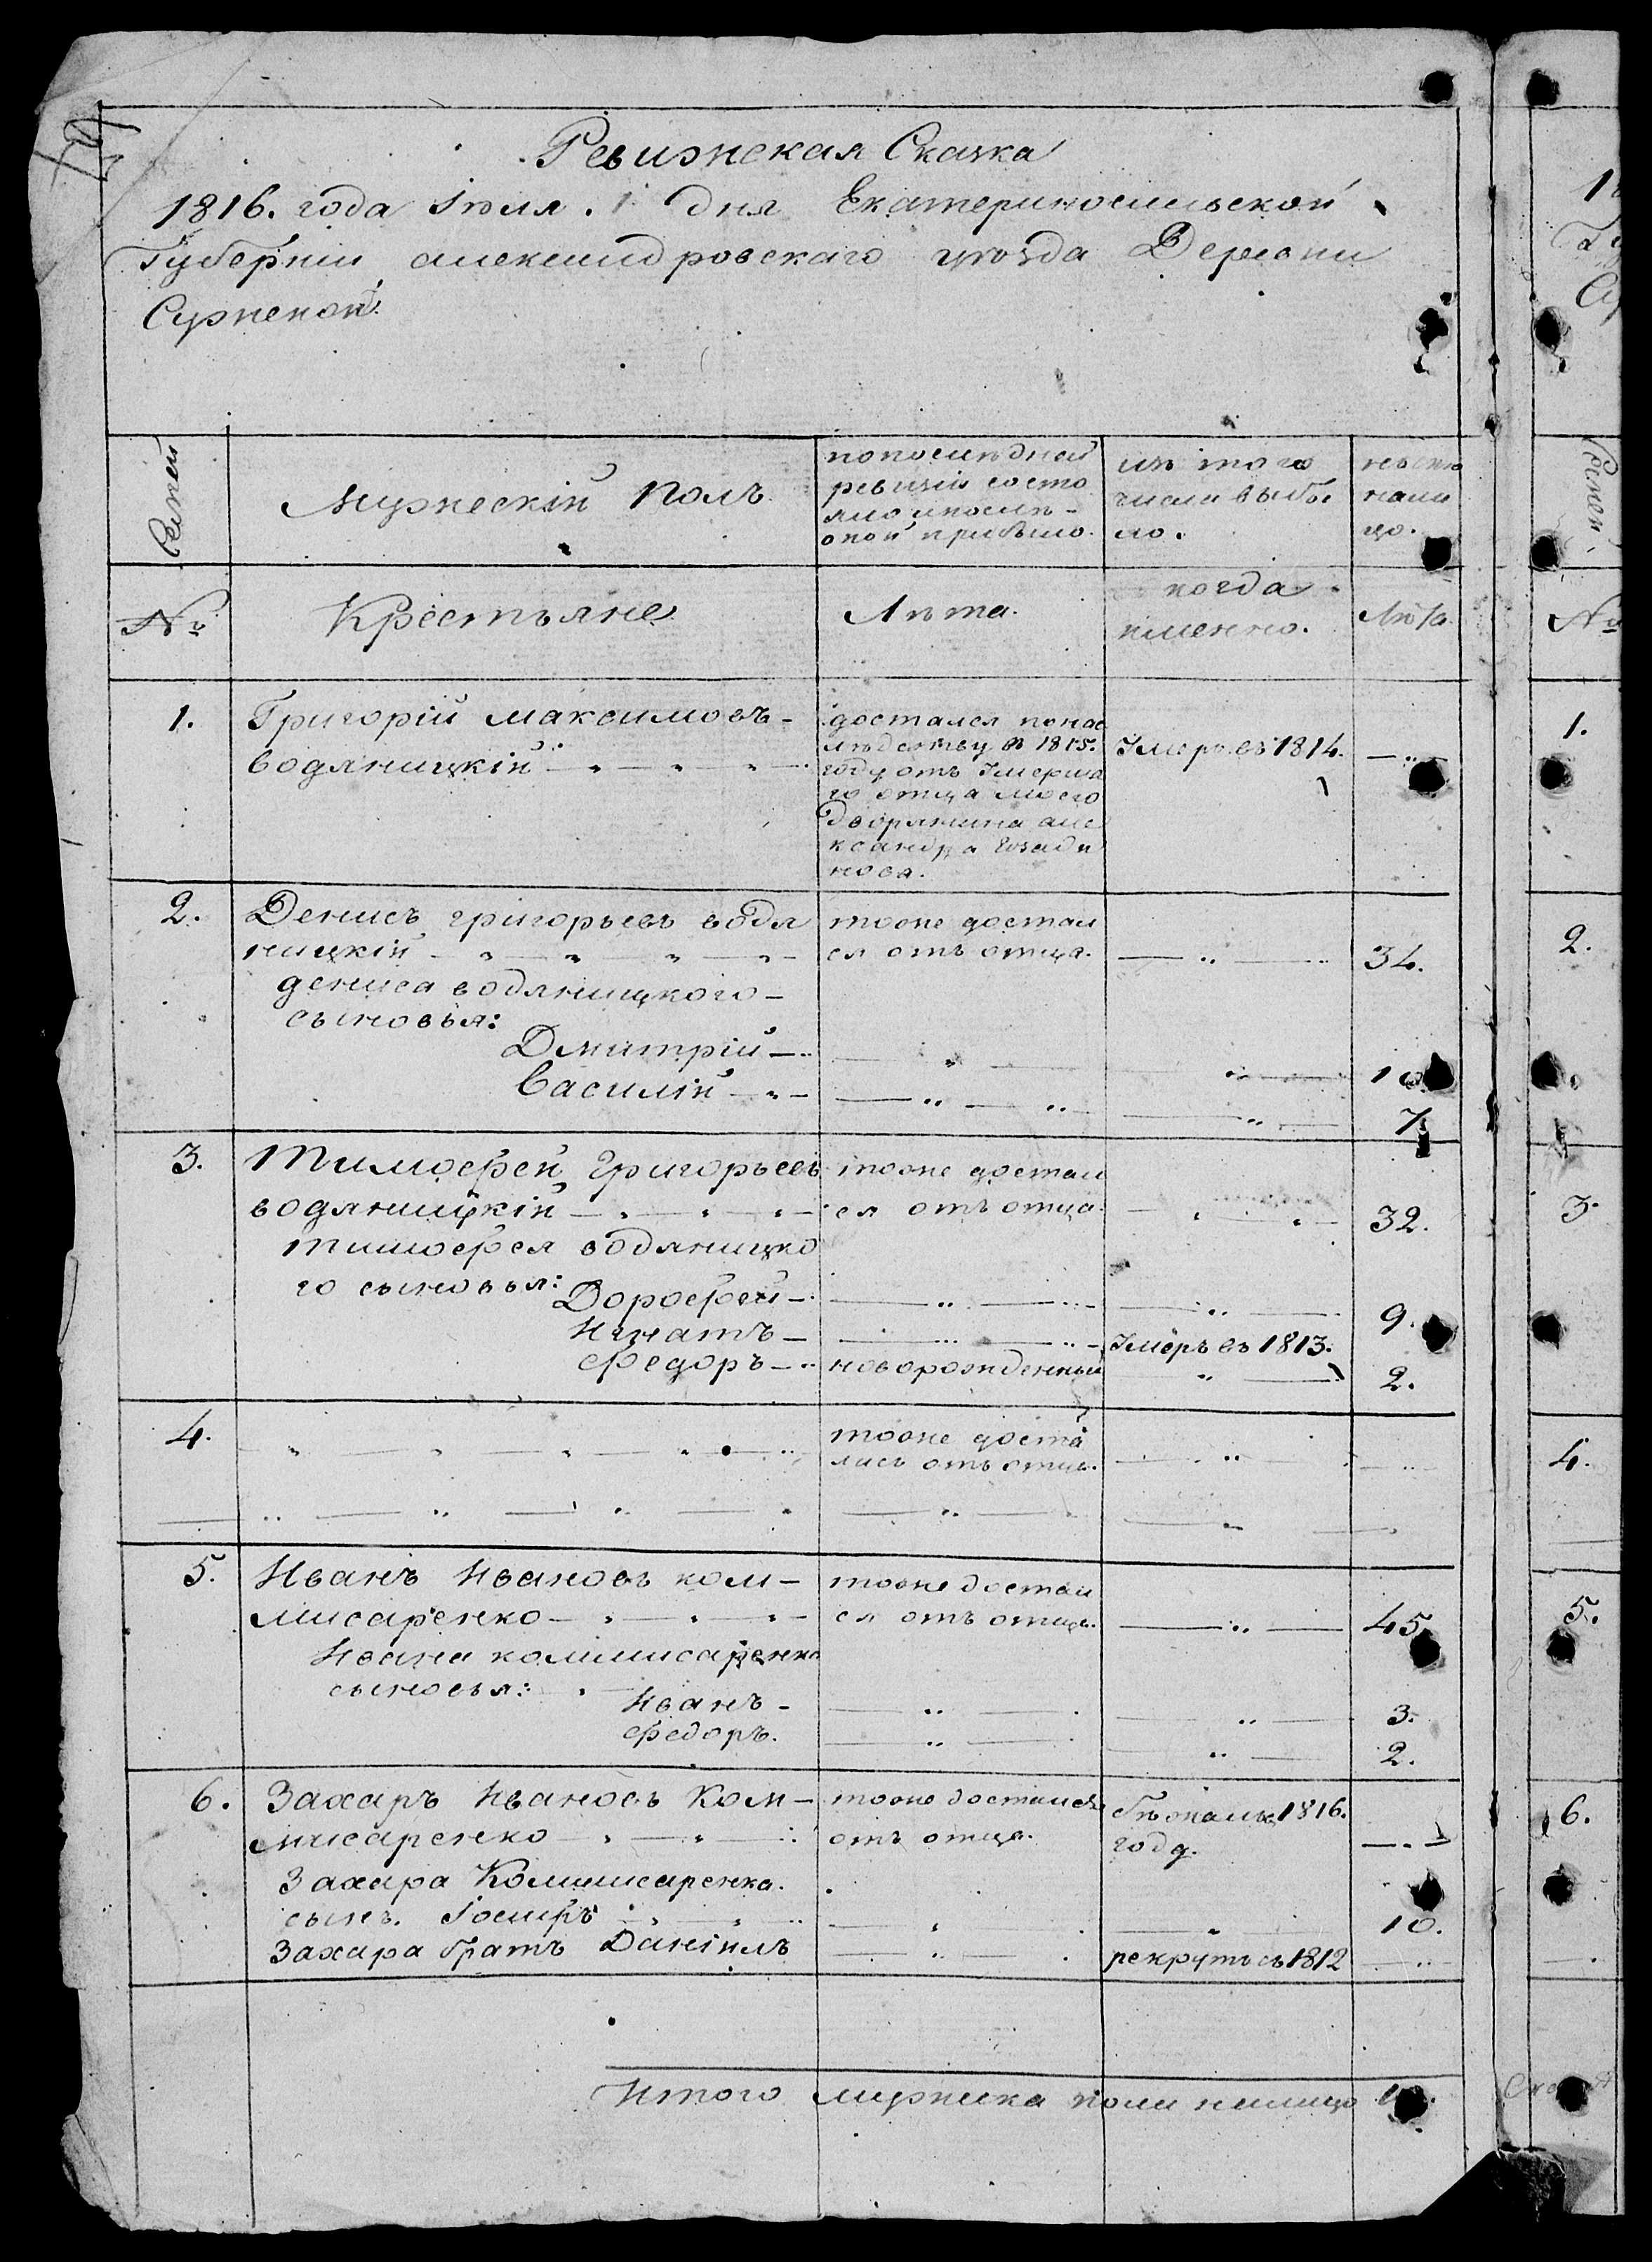 Ревижская Сказка
1816. года Іюля . 1 дня Екатеринославской
Губерніи александровскаго уѣзда Деревни
Сем͏ей
Мужескій Полъ
попослѣдней
ревизіи состо
яло ипослѣ
оной прибыло.
изъ того
числа выбы
ло.
нынѣ
нали
цо.
№
Крестьяне
Лѣта.
когда
именно.
Лѣта
1. Григорій максимовъ –
водяницкій
достался понас
лѣдству въ 1815.
году отъ Умерша
го отца моего
дворянина але
ксандра
нова.
Умеръ въ 1814.
2. Денисъ григорьевъ водя
ницкій
тоже достал
ся отъ отца.
34.
дениса водяницкого –
сыновья:
Дмитрій
Василій
7.
3. Тимофей Григорьевъ
водяницкій
тоже достал
ся отъ отца.
32.
тимофея водяницко
го сыновья:
Дорофей
9.
Игнатъ
Умеръ въ 1813.
Федоръ
новорожденный
2.
4.
тоже доста
лись отъ отца.
5. Иванъ Ивановъ ком –
мисаренко
тоже достал
ся отъ отца.
45.
Ивана коммисаренка
сыновья:
Иванъ
3.
Федоръ.
2.
6. Захаръ Ивановъ Ком –
мисаренко
тоже достался
отъ отца.
бѣжалъ 1816.
году.
Захара Коммисаренка.
сынъ. Іосифъ
10.
Захара братъ Даніилъ
рекрутъ въ 1812
Итого мужеска пола налицо
1.
2.
3.
4.
5.
6.